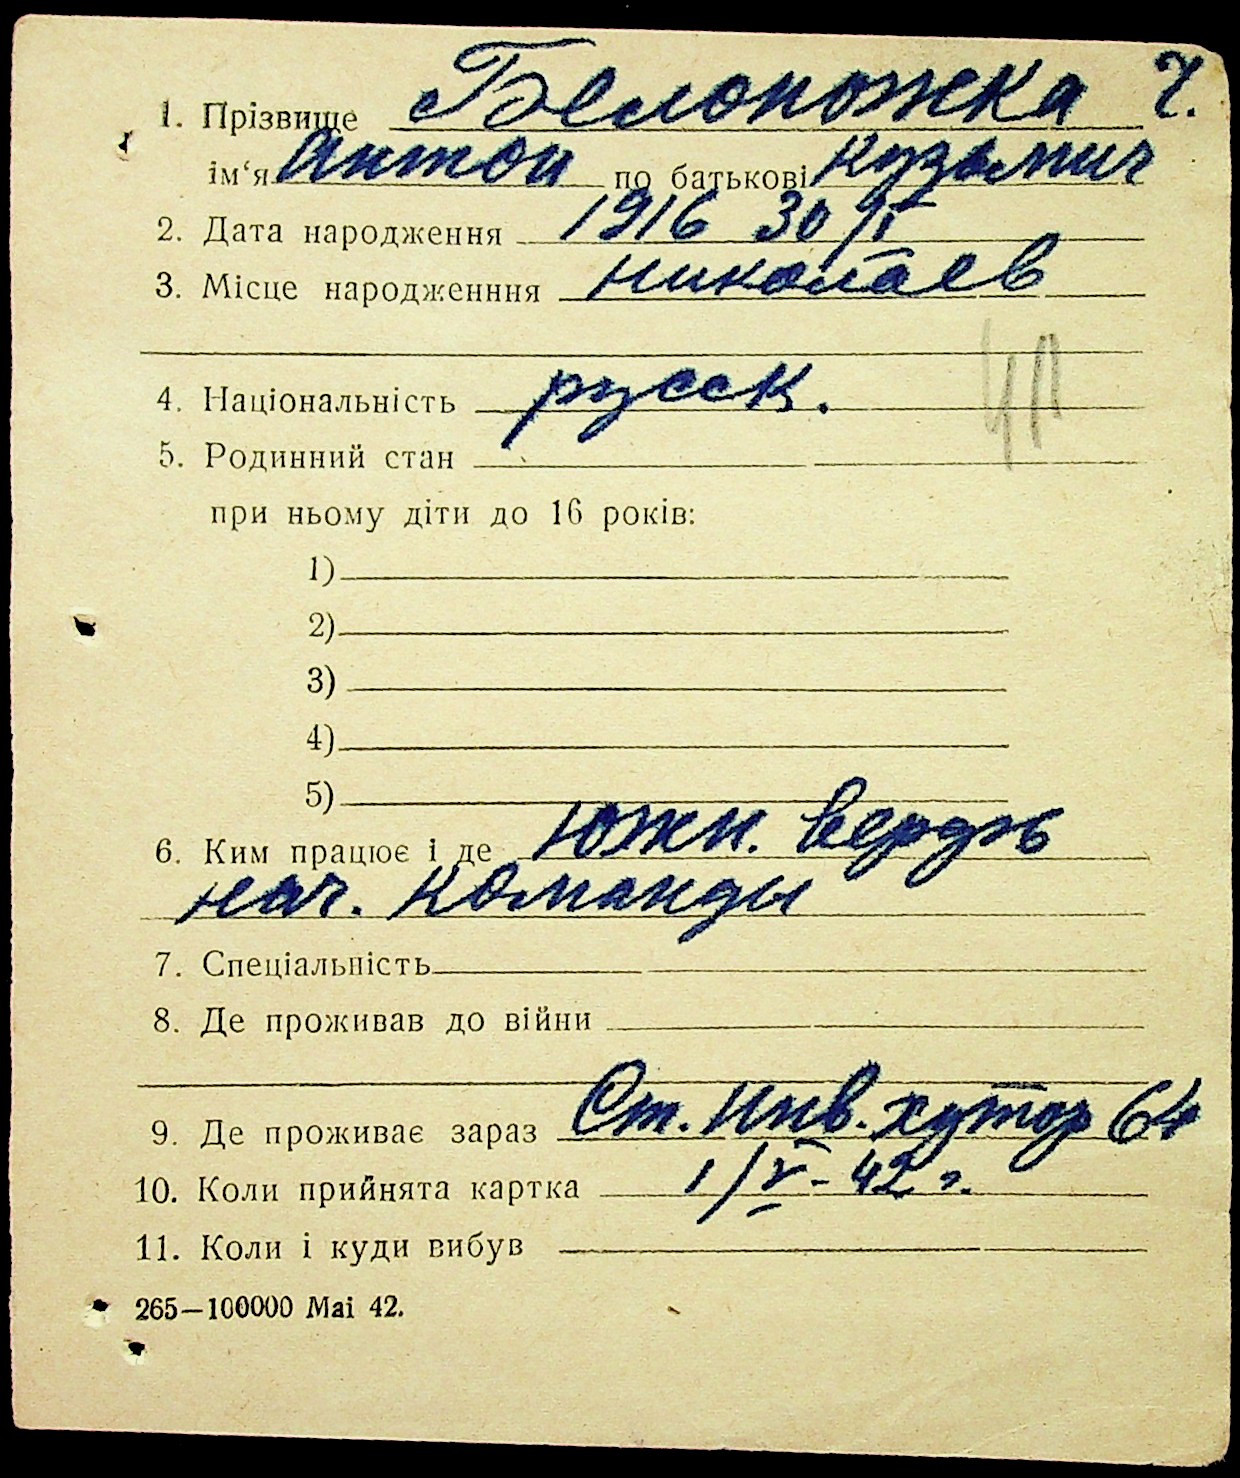 1. Прізвище Белоножка Ч.
ім‘я Антон по батькові Кузьмич
2. Дата народження 1916 30/II
3. Місце народженння Николаев
4. Національність русск.
5. Родинний стан
при ньому діти до 16 років:
1)
2)
3)
4)
5)
6. Ким працює і де Южн. верфь
нач. команды
7. Спеціальність
8. Де проживав до війни
9. Де проживає зараз Ст. Инв. хутор 64
10. Коли прийнята картка 1/V-42 г.
11. Коли і куди вибув
265—100000 Mai 42.